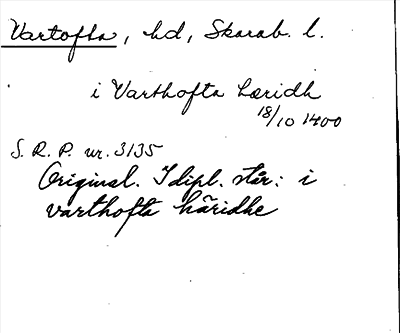 Vartofta, hd, Skarab. l.
i Varthofta hæridh
18/10 1400
S. R. P. nr. 3135
Original. I dipl. står: i
varthofta häridhe